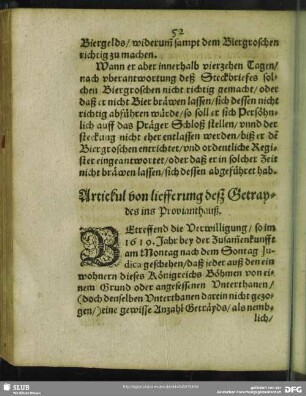 52
Biergelds/ widerum̃ sampt dem Biergroschen
richtig zu machen.
Wann er aber innerhalb vierzehen Tagen/
nach vberantwortung deß Steckbriefes sol-
chen Biergroschen nicht richtig gemacht/ oder
daß er nicht Bier bräwen lassen/ sich dessen nicht
richtig abführen würde/ so soll er sich Persöhn-
lich auff das Präger Schloß stellen/ vnnd der
steckung nicht eher entlassen werden/ biß er dẽ
Biergroschen entrichtet/ vnd ordentliche Regi-
ster eingeantwortet/ oder daß er in solcher Zeit
nicht bräwen lassen/ sich dessen abgeführet hab.
Artickul von liefferung deß Getray-
des ins Provianthauß.
BEtreffend die Verwilligung/ so im
1619. Jahr bey der Zusam̃enkunfft
am Montag nach dem Sontag Ju-
dica geschehen/ daß jeder auß den ein
wohnern dieses Königreichs Böhmen von ei-
nem Grund oder angesessenen Vnterthanen/
(doch denselben Vnterthanen darein nicht gezo-
gen/) eine gewisse Anzahl Geträyds/ als nemb-
lich/
SLUB
DFG